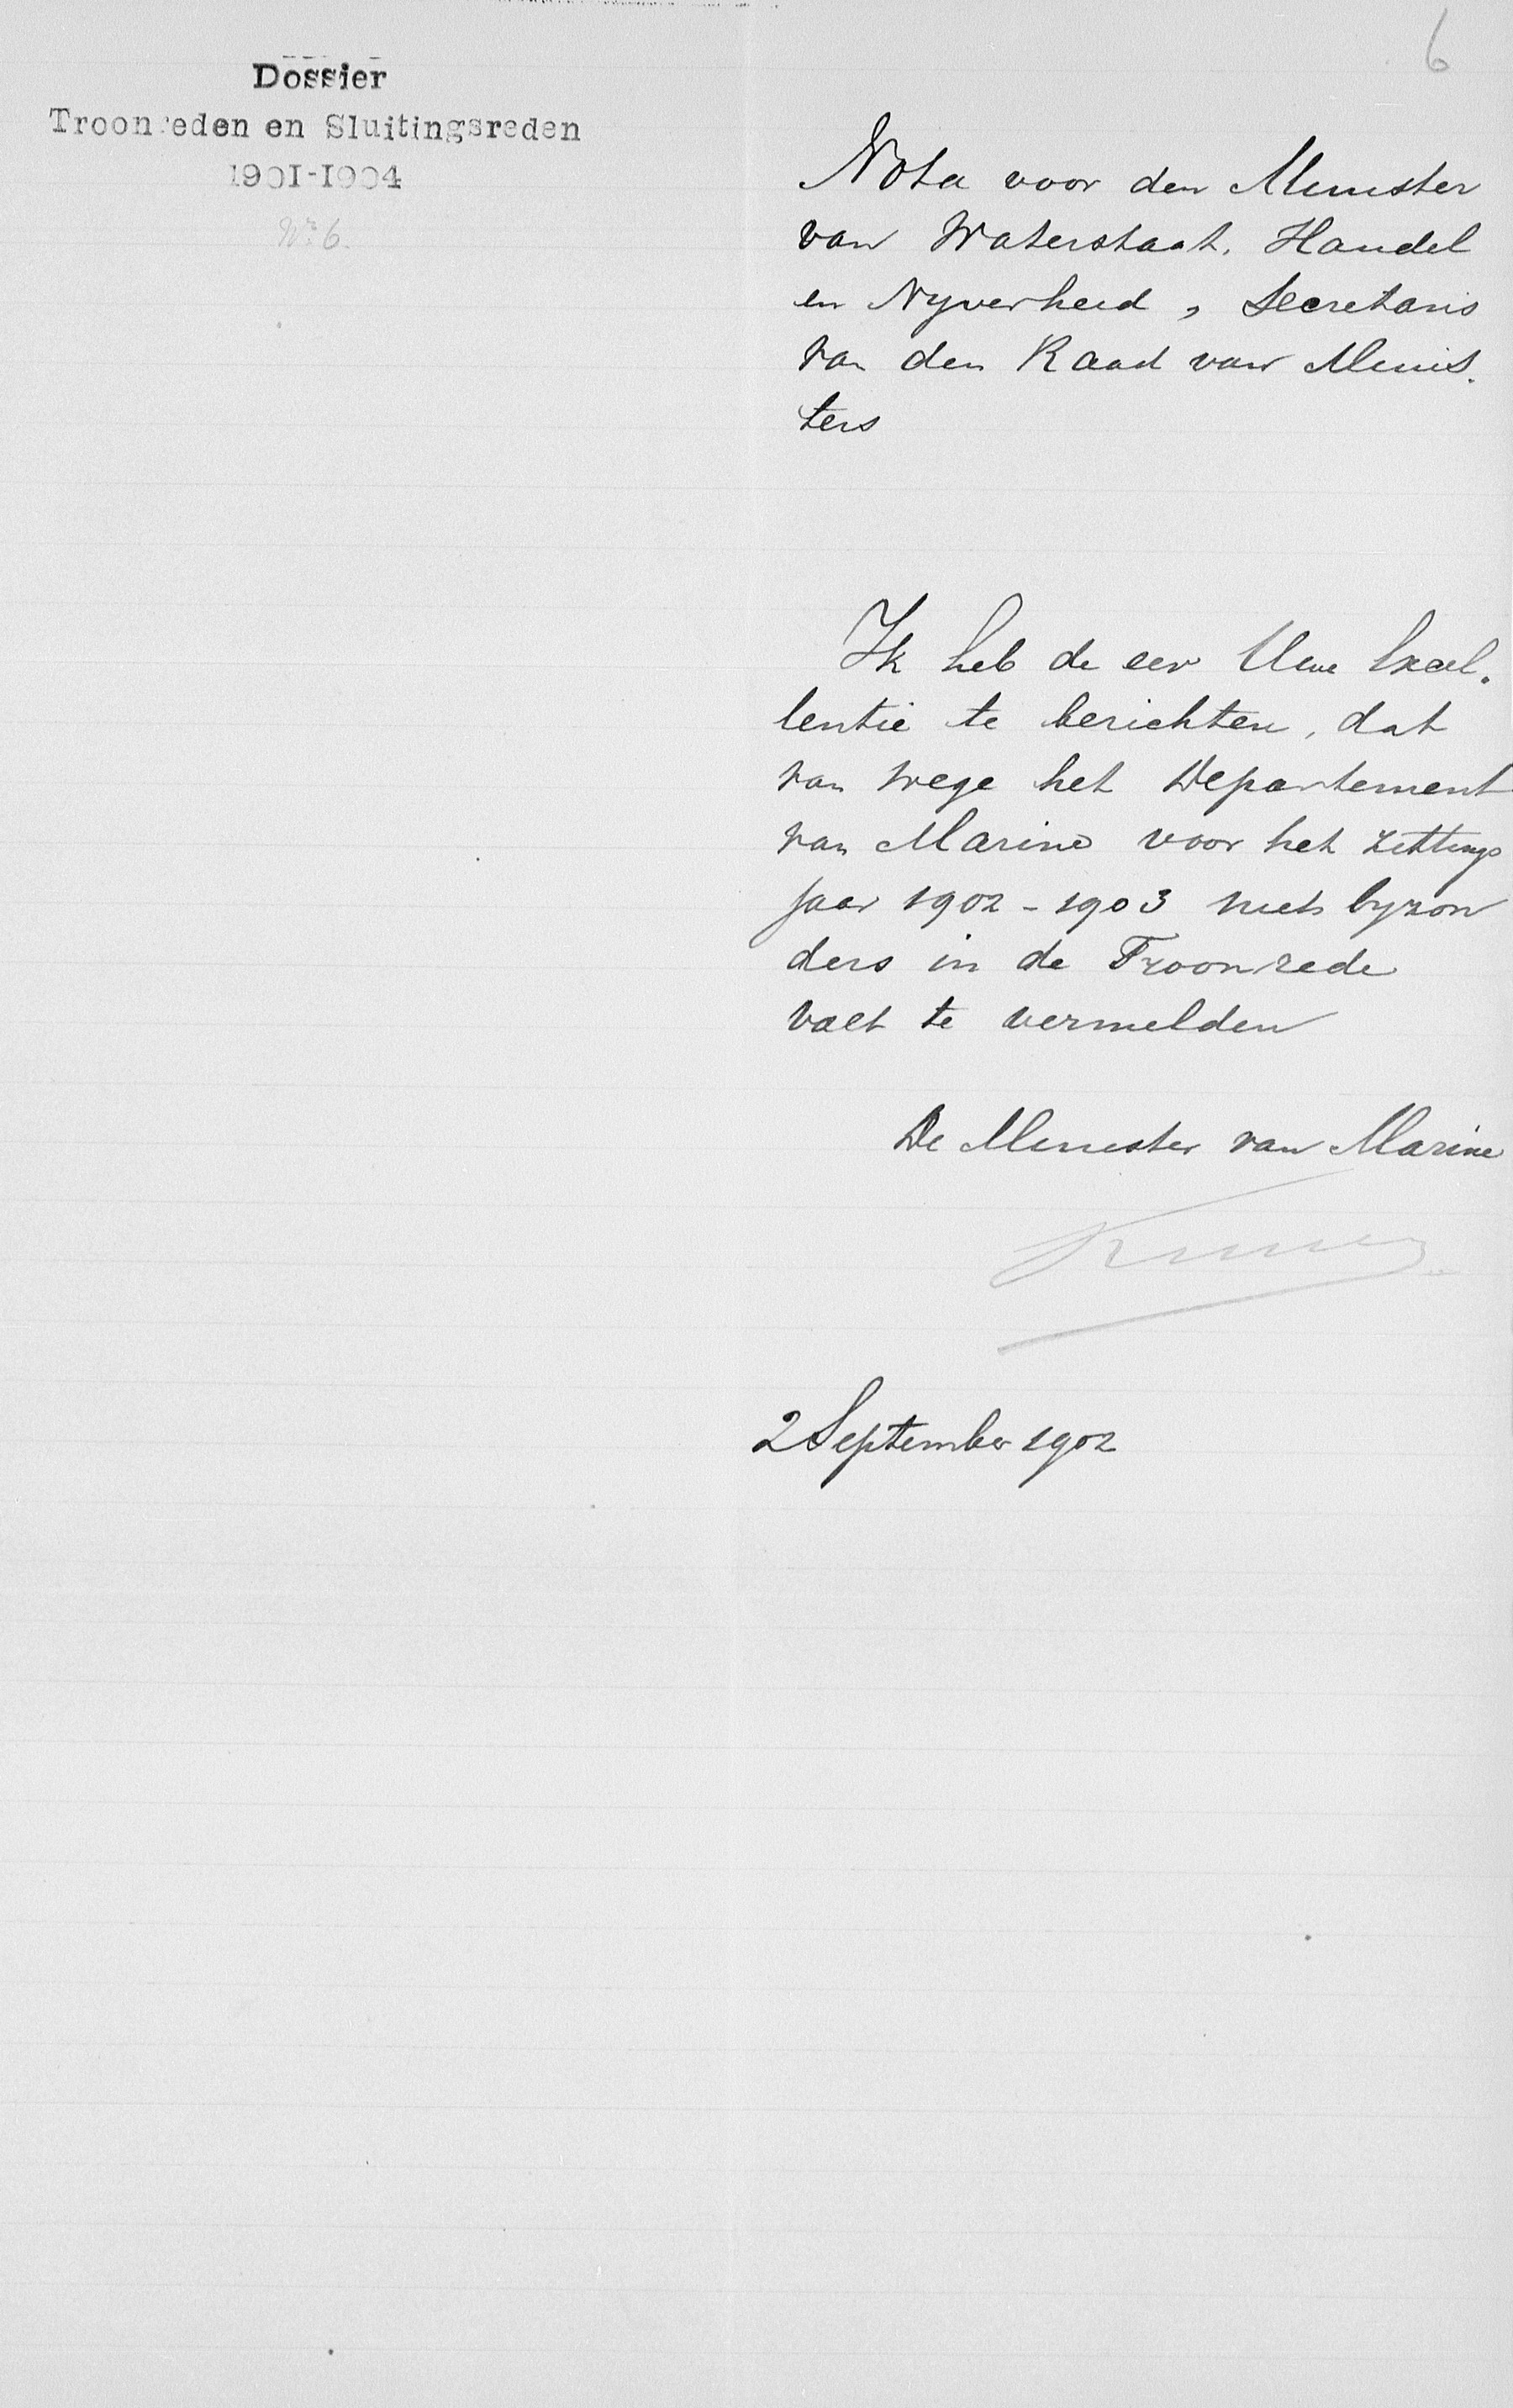 Dossier
Troonreden en Sluitingsreden
1901-1904
No. 6.
6
Nota voor den Minister
van Waterstaat, Handel
en Nyverheid, Secretaris
van den Raad van Minis-
ters
Ik heb de eer Uwe Excel-
lentie te berichten, dat
van wege het Departement
van Marine voor het zittings
jaar 1902-1903 niets byzon
ders in de Troonrede
valt te vermelden
De Minister van Marine
2 September 1902